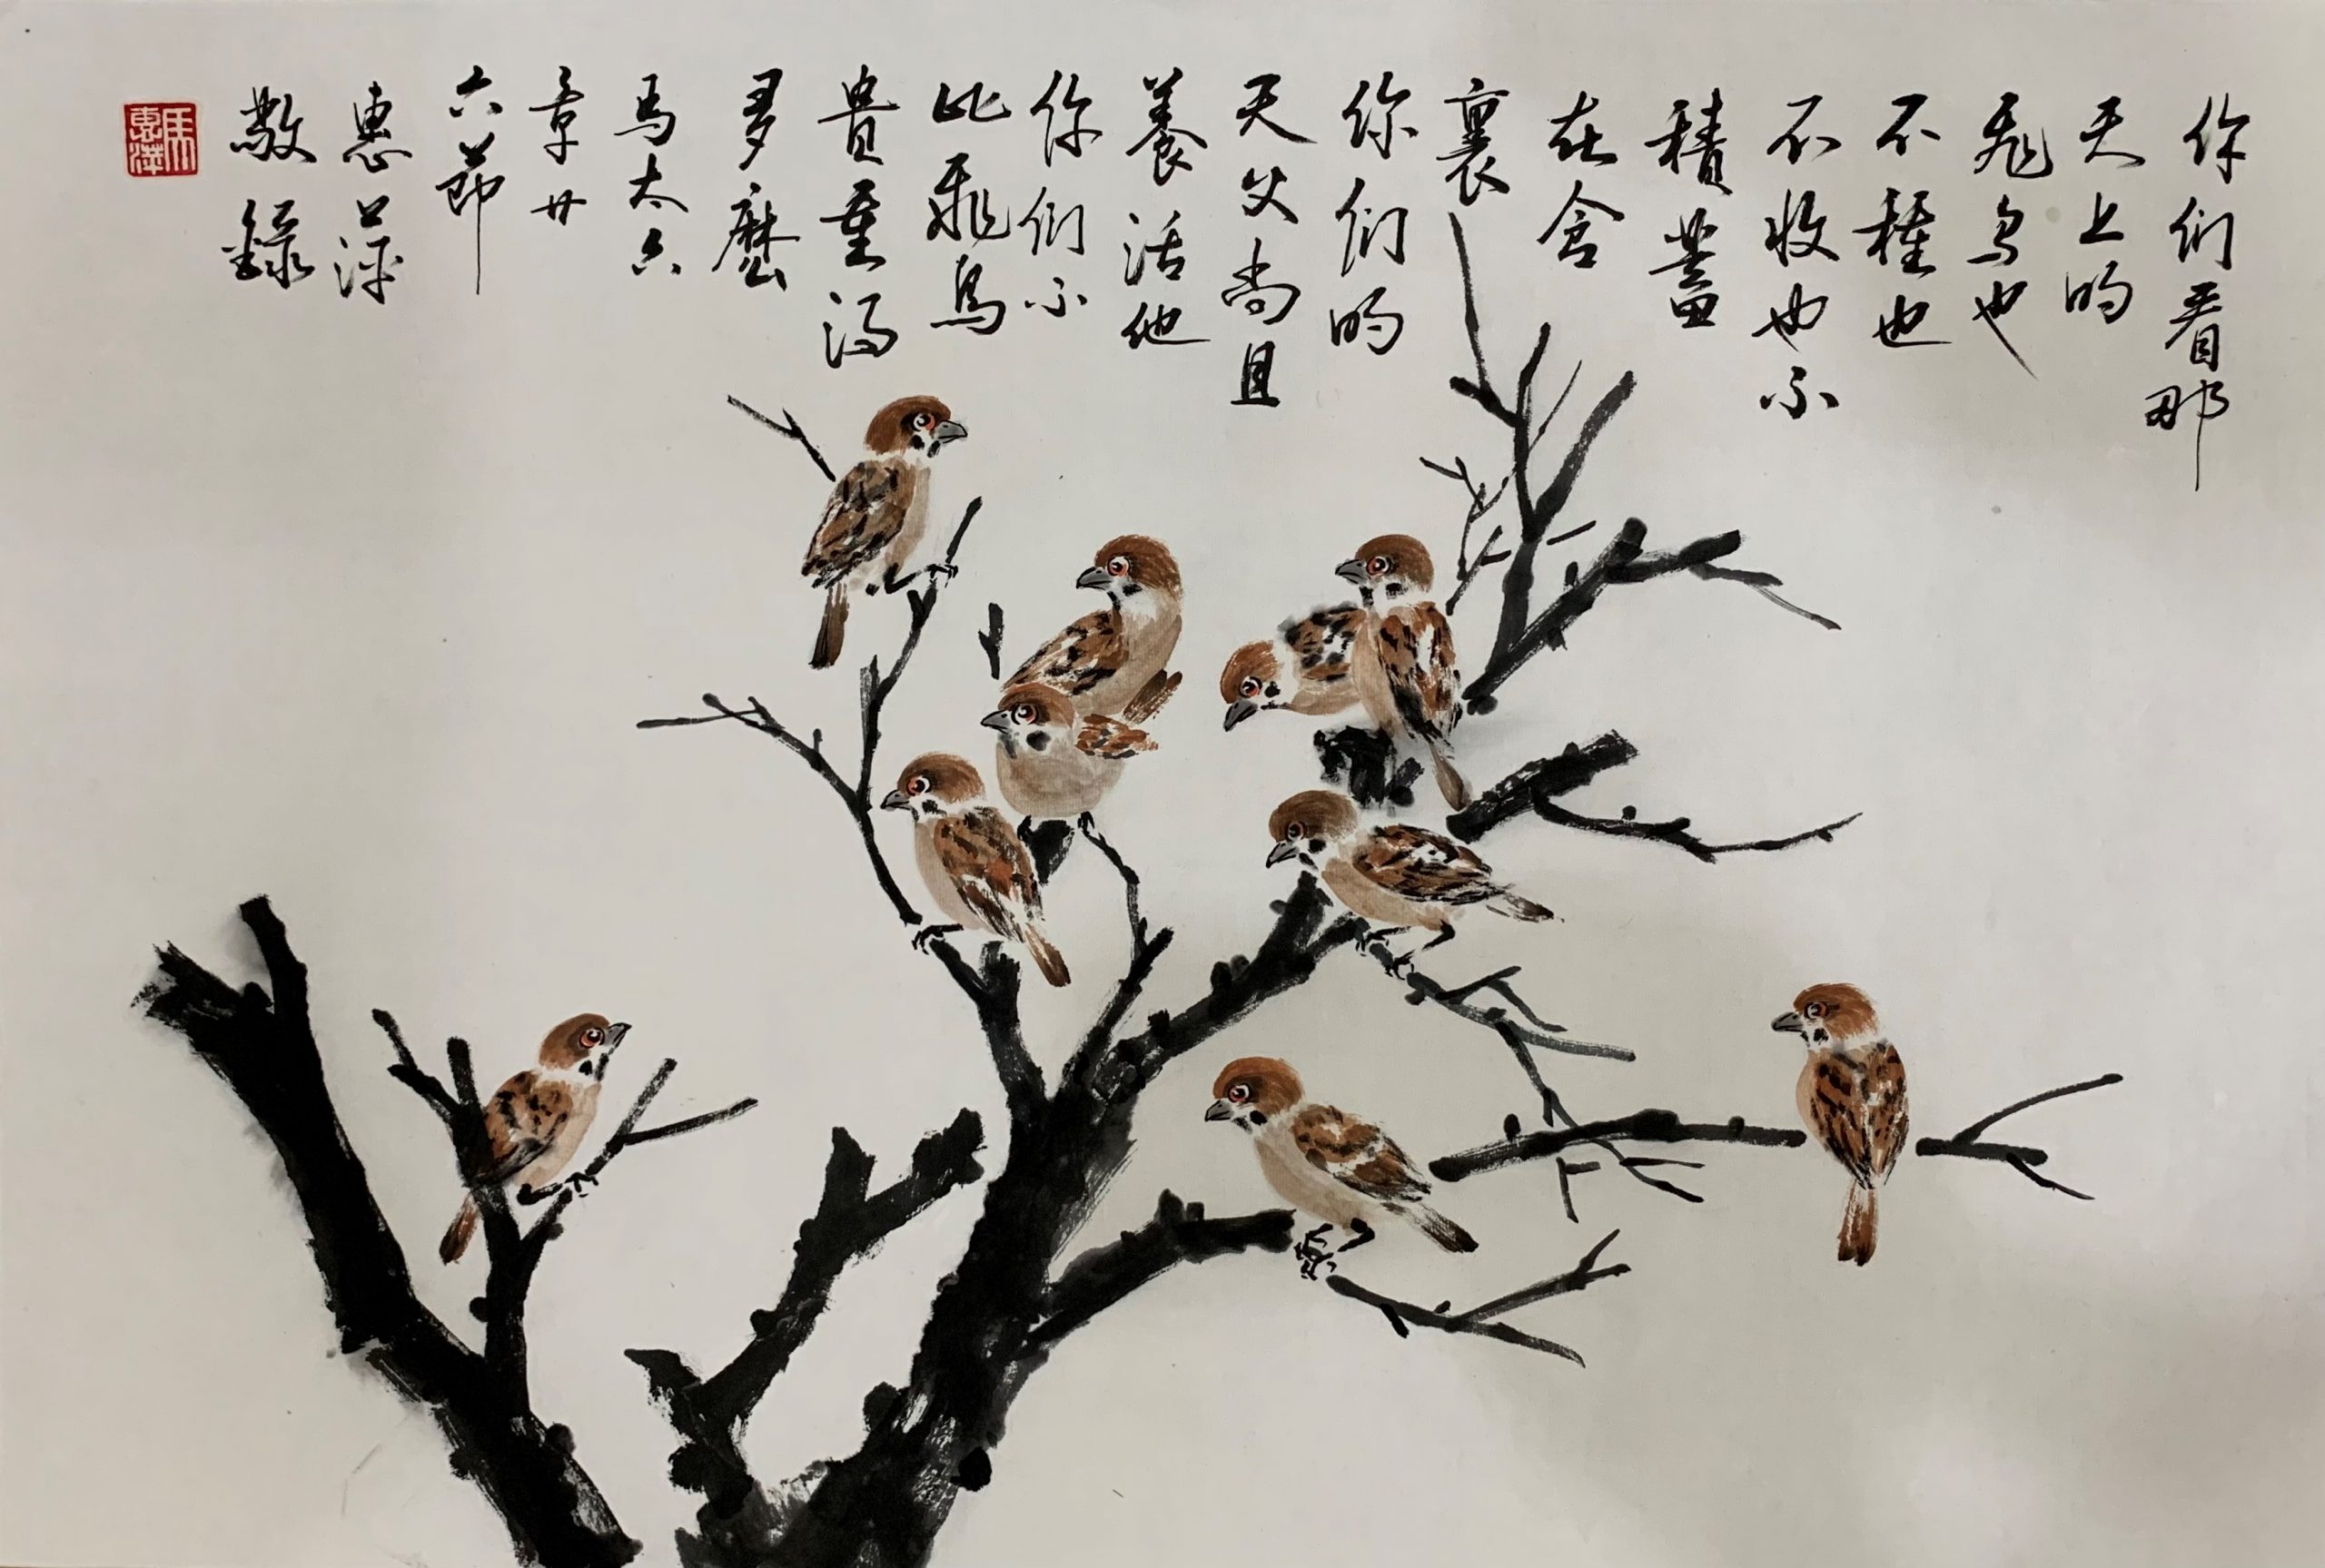 你们看那
天上的
飛鳥也
不種也
不收也不
積蓄
在倉
裏
你们的
天父尚且
養活他
你们不
比飛鳥
貴重得
多麼
馬太六
章廿
六節
惠萍
敬錄
馬惠萍